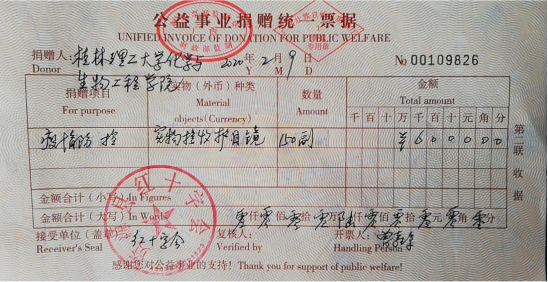 公益事业捐赠统一票据
UNIFIED INVOICE OF DONATION FOR PUBLIC WELFARE
捐赠人: 桂林理工大学化学与 2020年2月9日 No 00109826
Donor Y M D
生物工程学院
捐赠项目 实物(外币)种类 数量 金额
For purpose Material objects(Currency) Amount Total amount
千百十万千百十元角分
疫情防控 实物接收护目镜 150副 ¥600000
第二联 收据
金额合计(小写)In Figures
金额合计(大写)In Words 零仟零佰零拾零万陆仟零佰零拾零元零角零分
接受单位(盖章) 红十字会 复核人: 开票人:
Receiver's Seal Verified by Handling Person
感谢您对公益事业的支持! Thank you for support of public welfare!
县红十字会
财政部监制
专用章